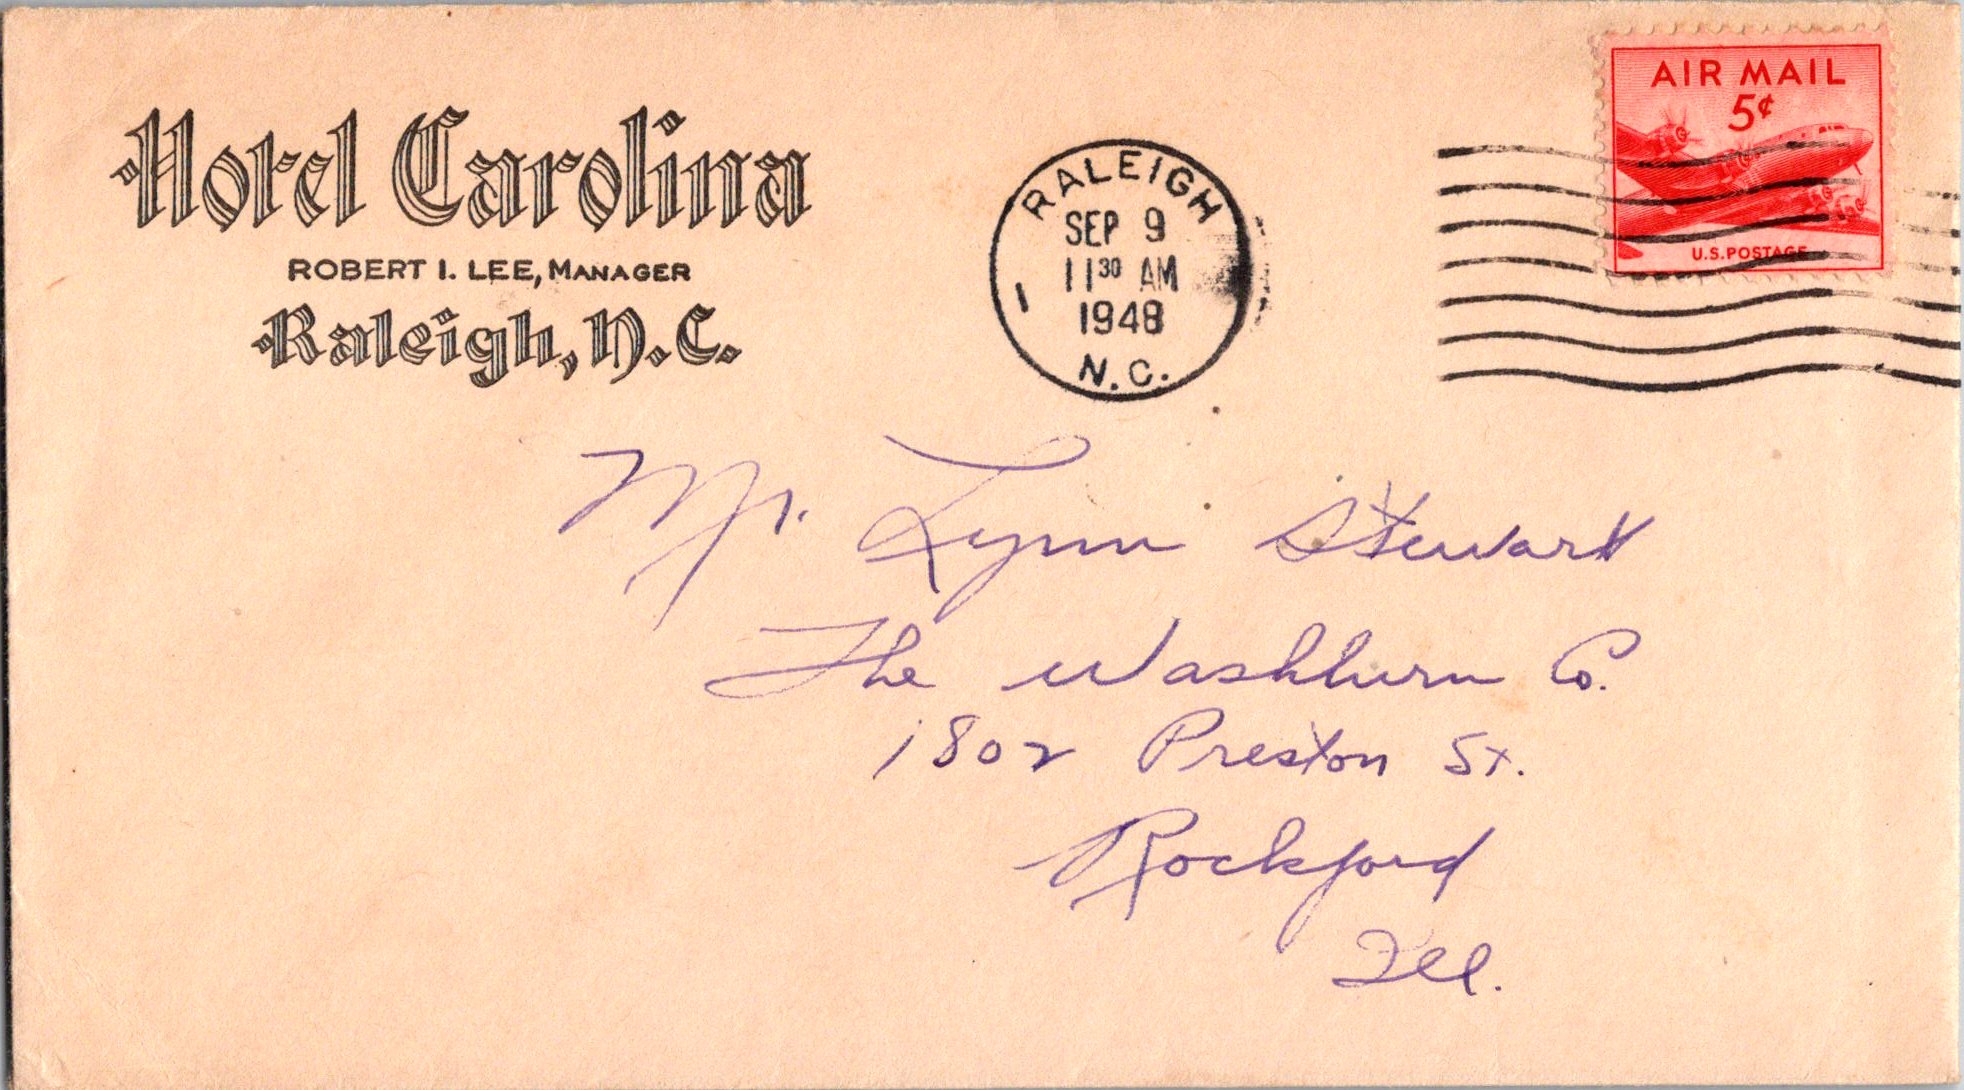 Hotel Carolina
ROBERT I. LEE, MANAGER
Raleigh, N.C.
RALEIGH
SEP 9
11 30 AM
1948
1
N.C.
AIR MAIL
5¢
U.S. POSTAGE
Mr. Lynn Stewart
The Washburn Co.
1802 Preston St.
Rockford
Ill.